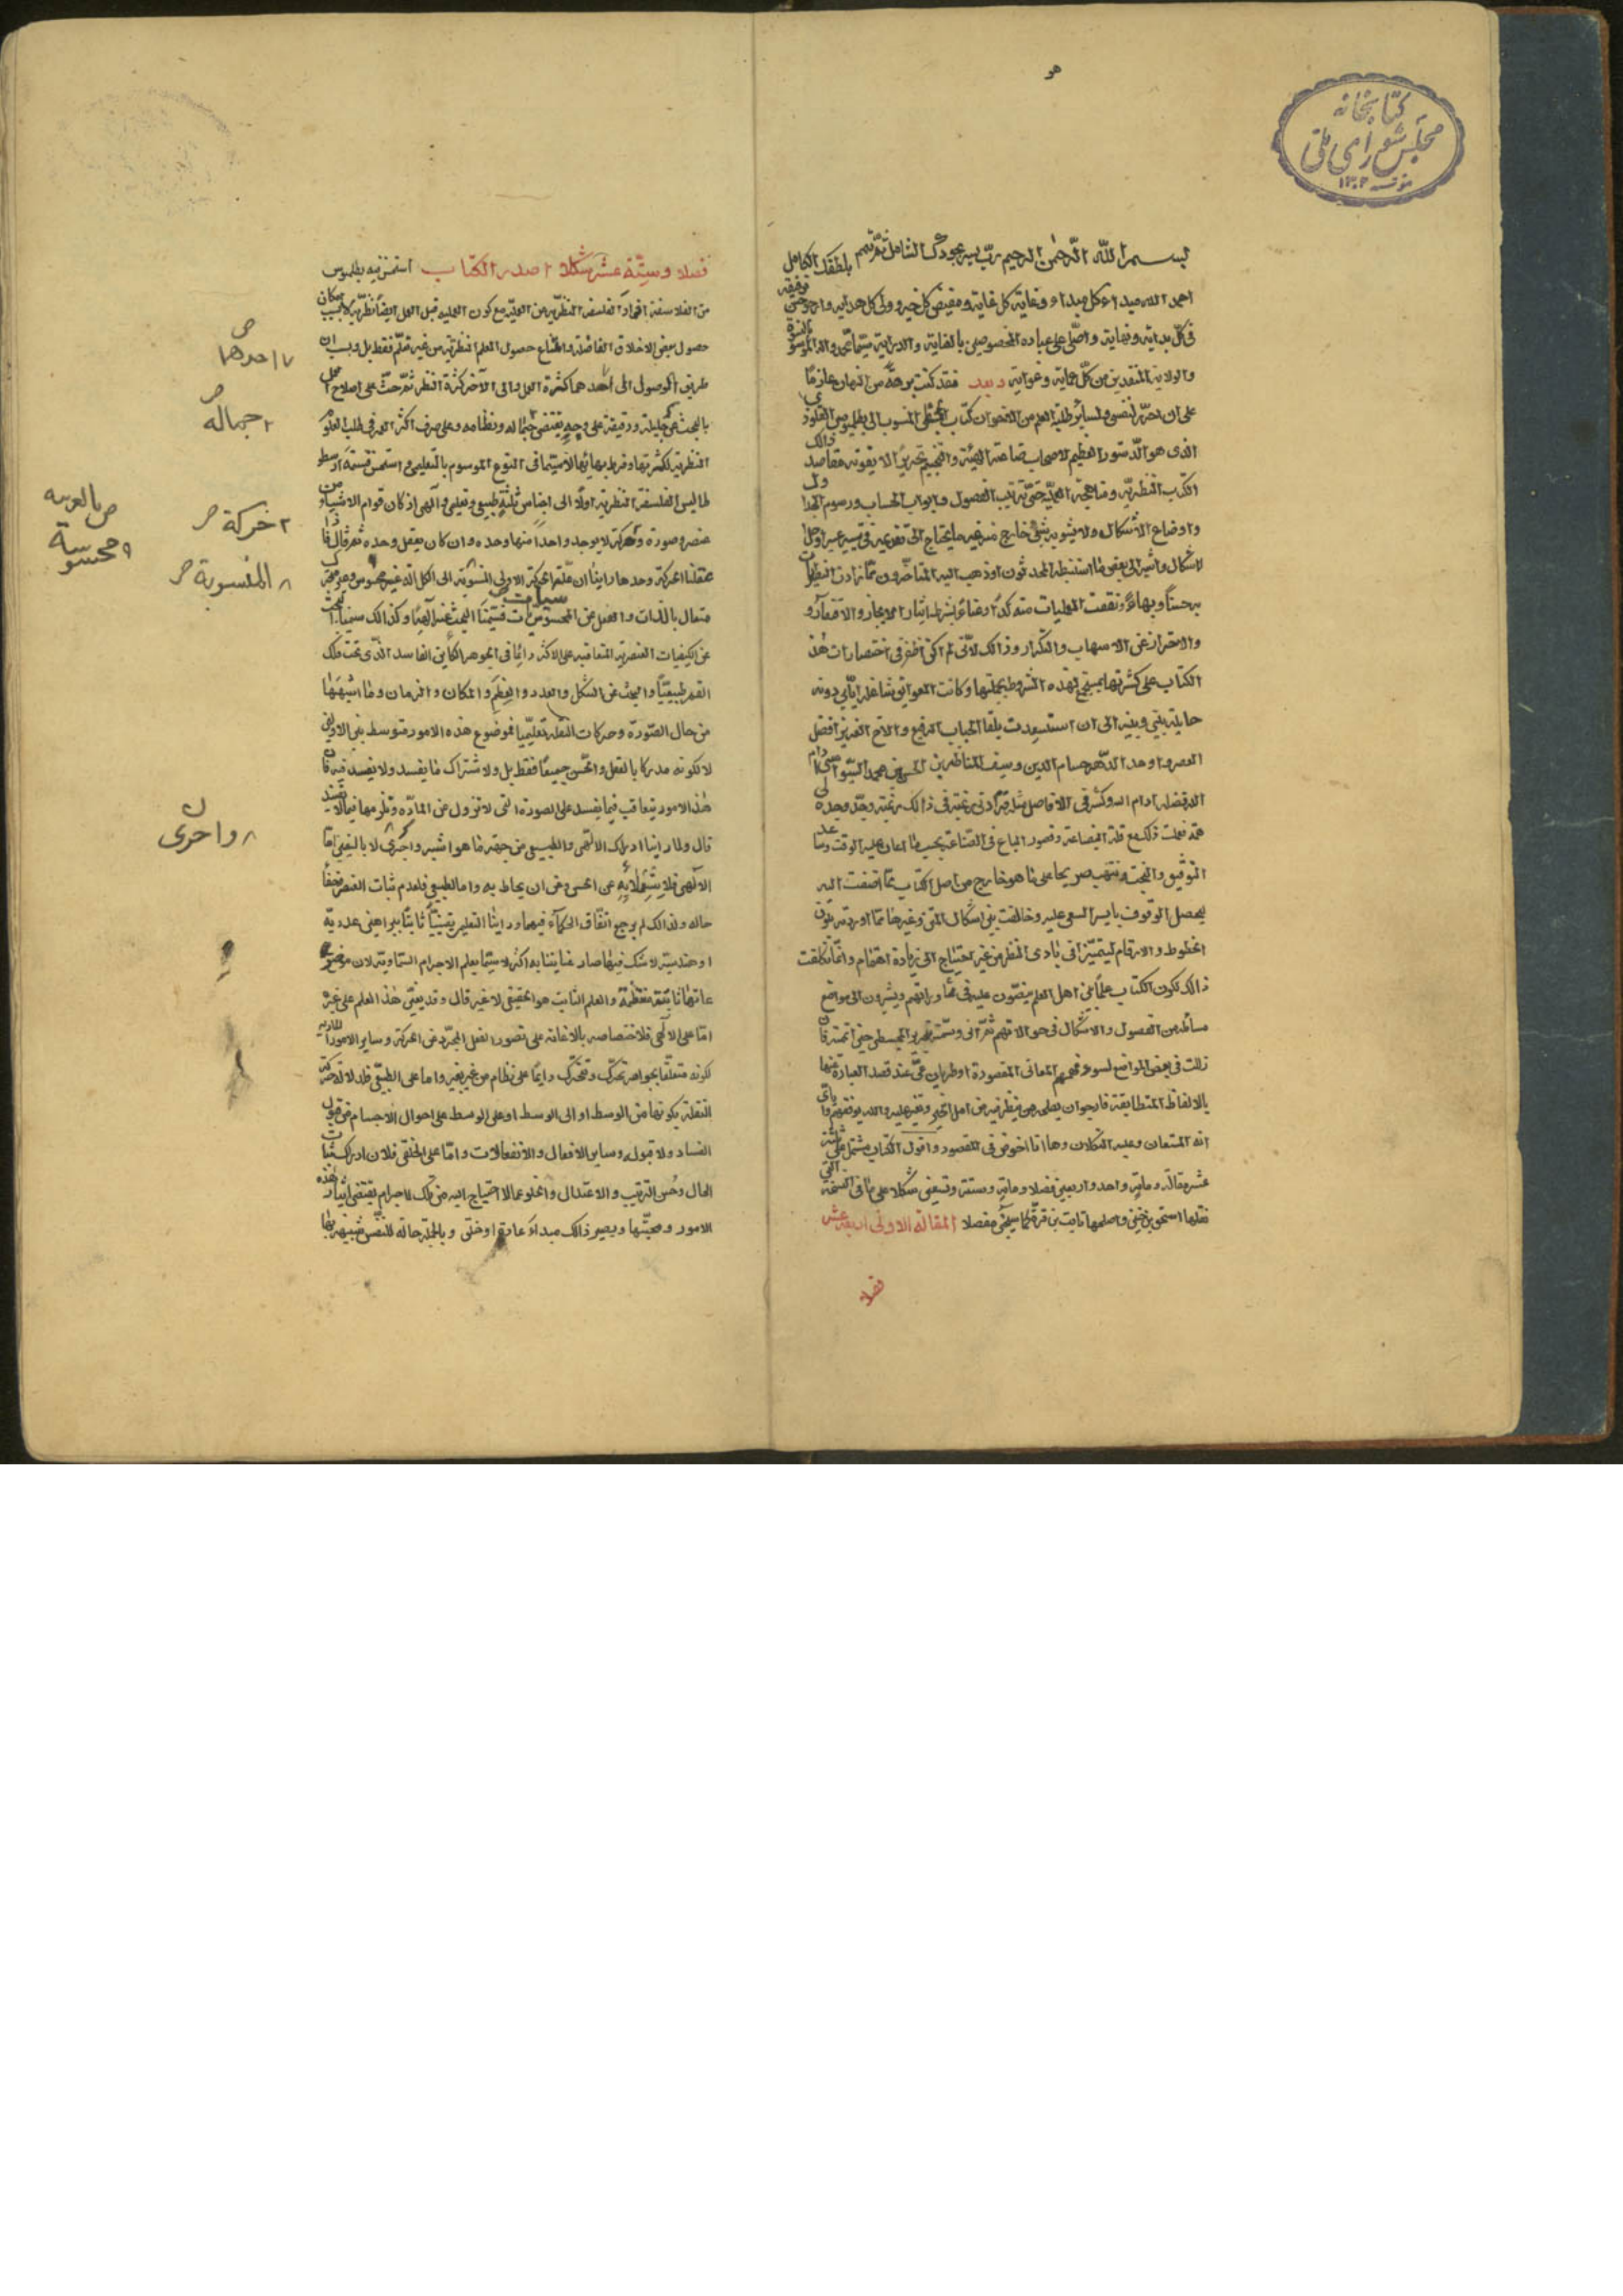 هو
كتابخانه
مجلس شورای ملی
١٣٠٢
بسم الله الرحمن الرحيم رب يسر بجودك الشامل ثم تمم بلطفك الكامل
احمد الله مبداء كل مبداء وغاية كل غاية ومفيض كل خير وولى كل هداية وارجو حسن توفيقه
فى كل بداية ونهاية واصلى على عباده المخصوصين بالعناية والدراية سيما محمد واله
والولاية المنقذين من كل عماية وغواية وبعد فقد كنت برهة من الزمان عازما
على ان احرر لنفسى ولسائر طلبة العلم من الاخوان كتاب المجسطى المنسوب الى بطلميوس القلوذى
الذى هو الدستور العظيم لاصحاب صناعة الهيئة والتنجيم تحريرا لا يفوته مقاصد ذالك
الكتاب النظرية ومناهجه العملية حتى ترتيب الفصول وابواب الحساب ورسوم الجداول
واوضاع الاشكال ولا يشوبه شىء خارج منه غير ما يحتاج اليه فى تفسير عسير او حل
اشكال واشير الى بعض ما استنبطه المحدثون او ذهب اليه المتاخرون مما زادت النظريات
به حسنا وبهاء ونقصت العمليات منه كدا وعناء بشرط ايثار الايجاز والاقتفاء
والاحتراز عن الاسهاب والتكرار وذالك لانى لم اكن اظفر فى اختصارات هذا
الكتاب على كثرتها بمستجمع لهذه الشروط بجملتها وكانت العوائق شاغلة اياى دونه
حائلة بينى وبينه الى ان استسعدت بلقاء الجناب الرفيع والاخ العزيز افضل
العصر واوحد الدهر حسام الدين وسيف المناظرين الحسن بن محمد السيواسى دام
الله فضله ادام الله وكثر فى الافاضل مثله فزادتنى رغبته فى ذالك رغبة وجدد وجده لى
جدة ففعلت ذلك مع قلة البضاعة وقصور الباع فى الصناعة بحسب ما اعان عليه الوقت وساعد عليه
التوفيق والبخت ونبهت صريحا على ما هو خارج من اصل الكتاب مما اضفت اليه
ليحصل الوقوف بايسر السعى عليه وخالفت بين اشكال المتن وغيرها مما اوردته بلون
الخطوط والارقام ليتميزا فى بادى النظر من غير احتياج الى زيادة اهتمام وانما تكلفت
ذالك لكون الكتاب علما بين اهل العلم ينصون عليه فى محاوراتهم ويشيرون الى مواضع
مسائله من الفصول والاشكال فى حوالاتهم ثم انى وسمته بتحرير المجسطى حين اتممته فان
زللت فى بعض المواضع لسوء فهم المعانى المقصودة او طريان عى عند قصد العبارة عنها
بالالفاظ المتطابقة فارجو ان يصلحه من ينظر فيه من اهل الخير ويعثر عليه والله يوفقهم واياى
انه المستعان وعليه التكلان وها انا اخوض فى المقصود واقول الكتاب مشتمل على ثلثة
عشر مقالة ومائة واحد واربعين فصلا ومائة وستة وتسعين شكلا على ما فى النسخة التى
نقلها اسحق بن حنين واصلحها ثابت بن قرة كما سيجىء مفصلا المقالة الاولى اربعة عشر
فصلا
فصلا وستة عشر شكلا ا صدر الكتاب استحسن فيه بطلميوس
من الفلاسفة افراد الفلسفة النظرية عن العملية مع كون العملية قبل العمل ايضا نظرية لا بسبب امكان
حصول بعض الاخلاق الفاضلة وامتناع حصول العلم النظرية من غير تعلم فقط بل وبسبب ان
طريق الوصول الى احدهما كثرة العمل والى الآخر كثرة النظر ثم حث على اصلاح العمل
بالبحث عن جليله ودقيقه على وجه يقتضى جماله ونظامه وعلى صرف اكثر العمر فى طلب العلوم
النظرية لكثرتها وفرط بهائها لا سيما فى النوع الموسوم بالتعليمى واستحسن قسمة ارسطو
طاليس الفلسفة النظرية اولا الى اجناس ثلثة طبيعى وتعليمى وآلهى اذ كان قوام الاشياء من
عنصر وصورة وحركة لا يوجد واحدا منها وحده وان كان يعقل وحده ثم قال فاذا
عقلنا الحركة وحدها راينا ان علة الحركة الاولى المنسوبة الى الكل اله غير محسوس وغير متحرك
متعال بالذات والفعل عن المحسوسات فسمينا البحث عنه آلهيا وكذالك سمينا البحث
عن الكيفيات العنصرية المتعاقبة على الاكثر دائما فى الجوهر الكاين الفاسد الذى تحت فلك
القمر طبيعيا والبحث عن الشكل والعدد والعظم والمكان والزمان وما اشبهها
من حال الصورة وحركات النقلة تعليميا فموضوع هذه الامور متوسط بين الاولين
لا لكونه مدركا بالعقل والحس جميعا فقط بل ولاشتراك ما يفسد ولا يفسد فيه فان
هذه الامور يتعاقب فيما يفسد على الصورة التى لا تزول عن المادة وتلزمها فيما لا يفسد
قال ولما راينا ادراك الالهى والطبيعى من جهة ما هو اشبه واحرى لا باليقين اما
الآلهى فلا يتهيا لابه عن الحس وعن ان يحاط به واما الطبيعى فلعدم ثبات العنصر وخفاء
حاله ولذالك لم يرج اتفاق الحكماء فيهما وراينا التعليم يقينيا ثابتا ببراهين عددية
او هندسية لا شك فيها صار عنايتنا به اكثر لا سيما بعلم الاجرام السماوية لان موضوعه
والعلم الثابت هو الحقيقى لا غير قال وقد يعين هذا العلم على غيره
اما على الالهى فلاختصاصه بالاعانة على تصور الفعل المجرد عن الحركة وساير الامور المادية
لكونه متعلقا بجواهر تحرك وتتحرك دائما على نظام من غير تغير واما على الطبيعى فلدلالة حركة
النقلة بكونها من الوسط او الى الوسط او على الوسط على احوال الاجسام من قبول
الفساد ولا قبوله وساير الافعال والانفعالات واما على الخلقى فلان ادراك ثبات
الحال وحسن الترتيب والاعتدال والخلو عما لا احتياج اليه من تلك الاجرام يقتضى ايثار هذه
الامور ومحبتها ويصير ذالك مبداء عادة او خلق وبالجملة حالة للنفس شبيهة بها
٧ احدهما
٢ جماله
٢ حركة
٩ محسوسة
٨ المنسوبة
٨ واحرى